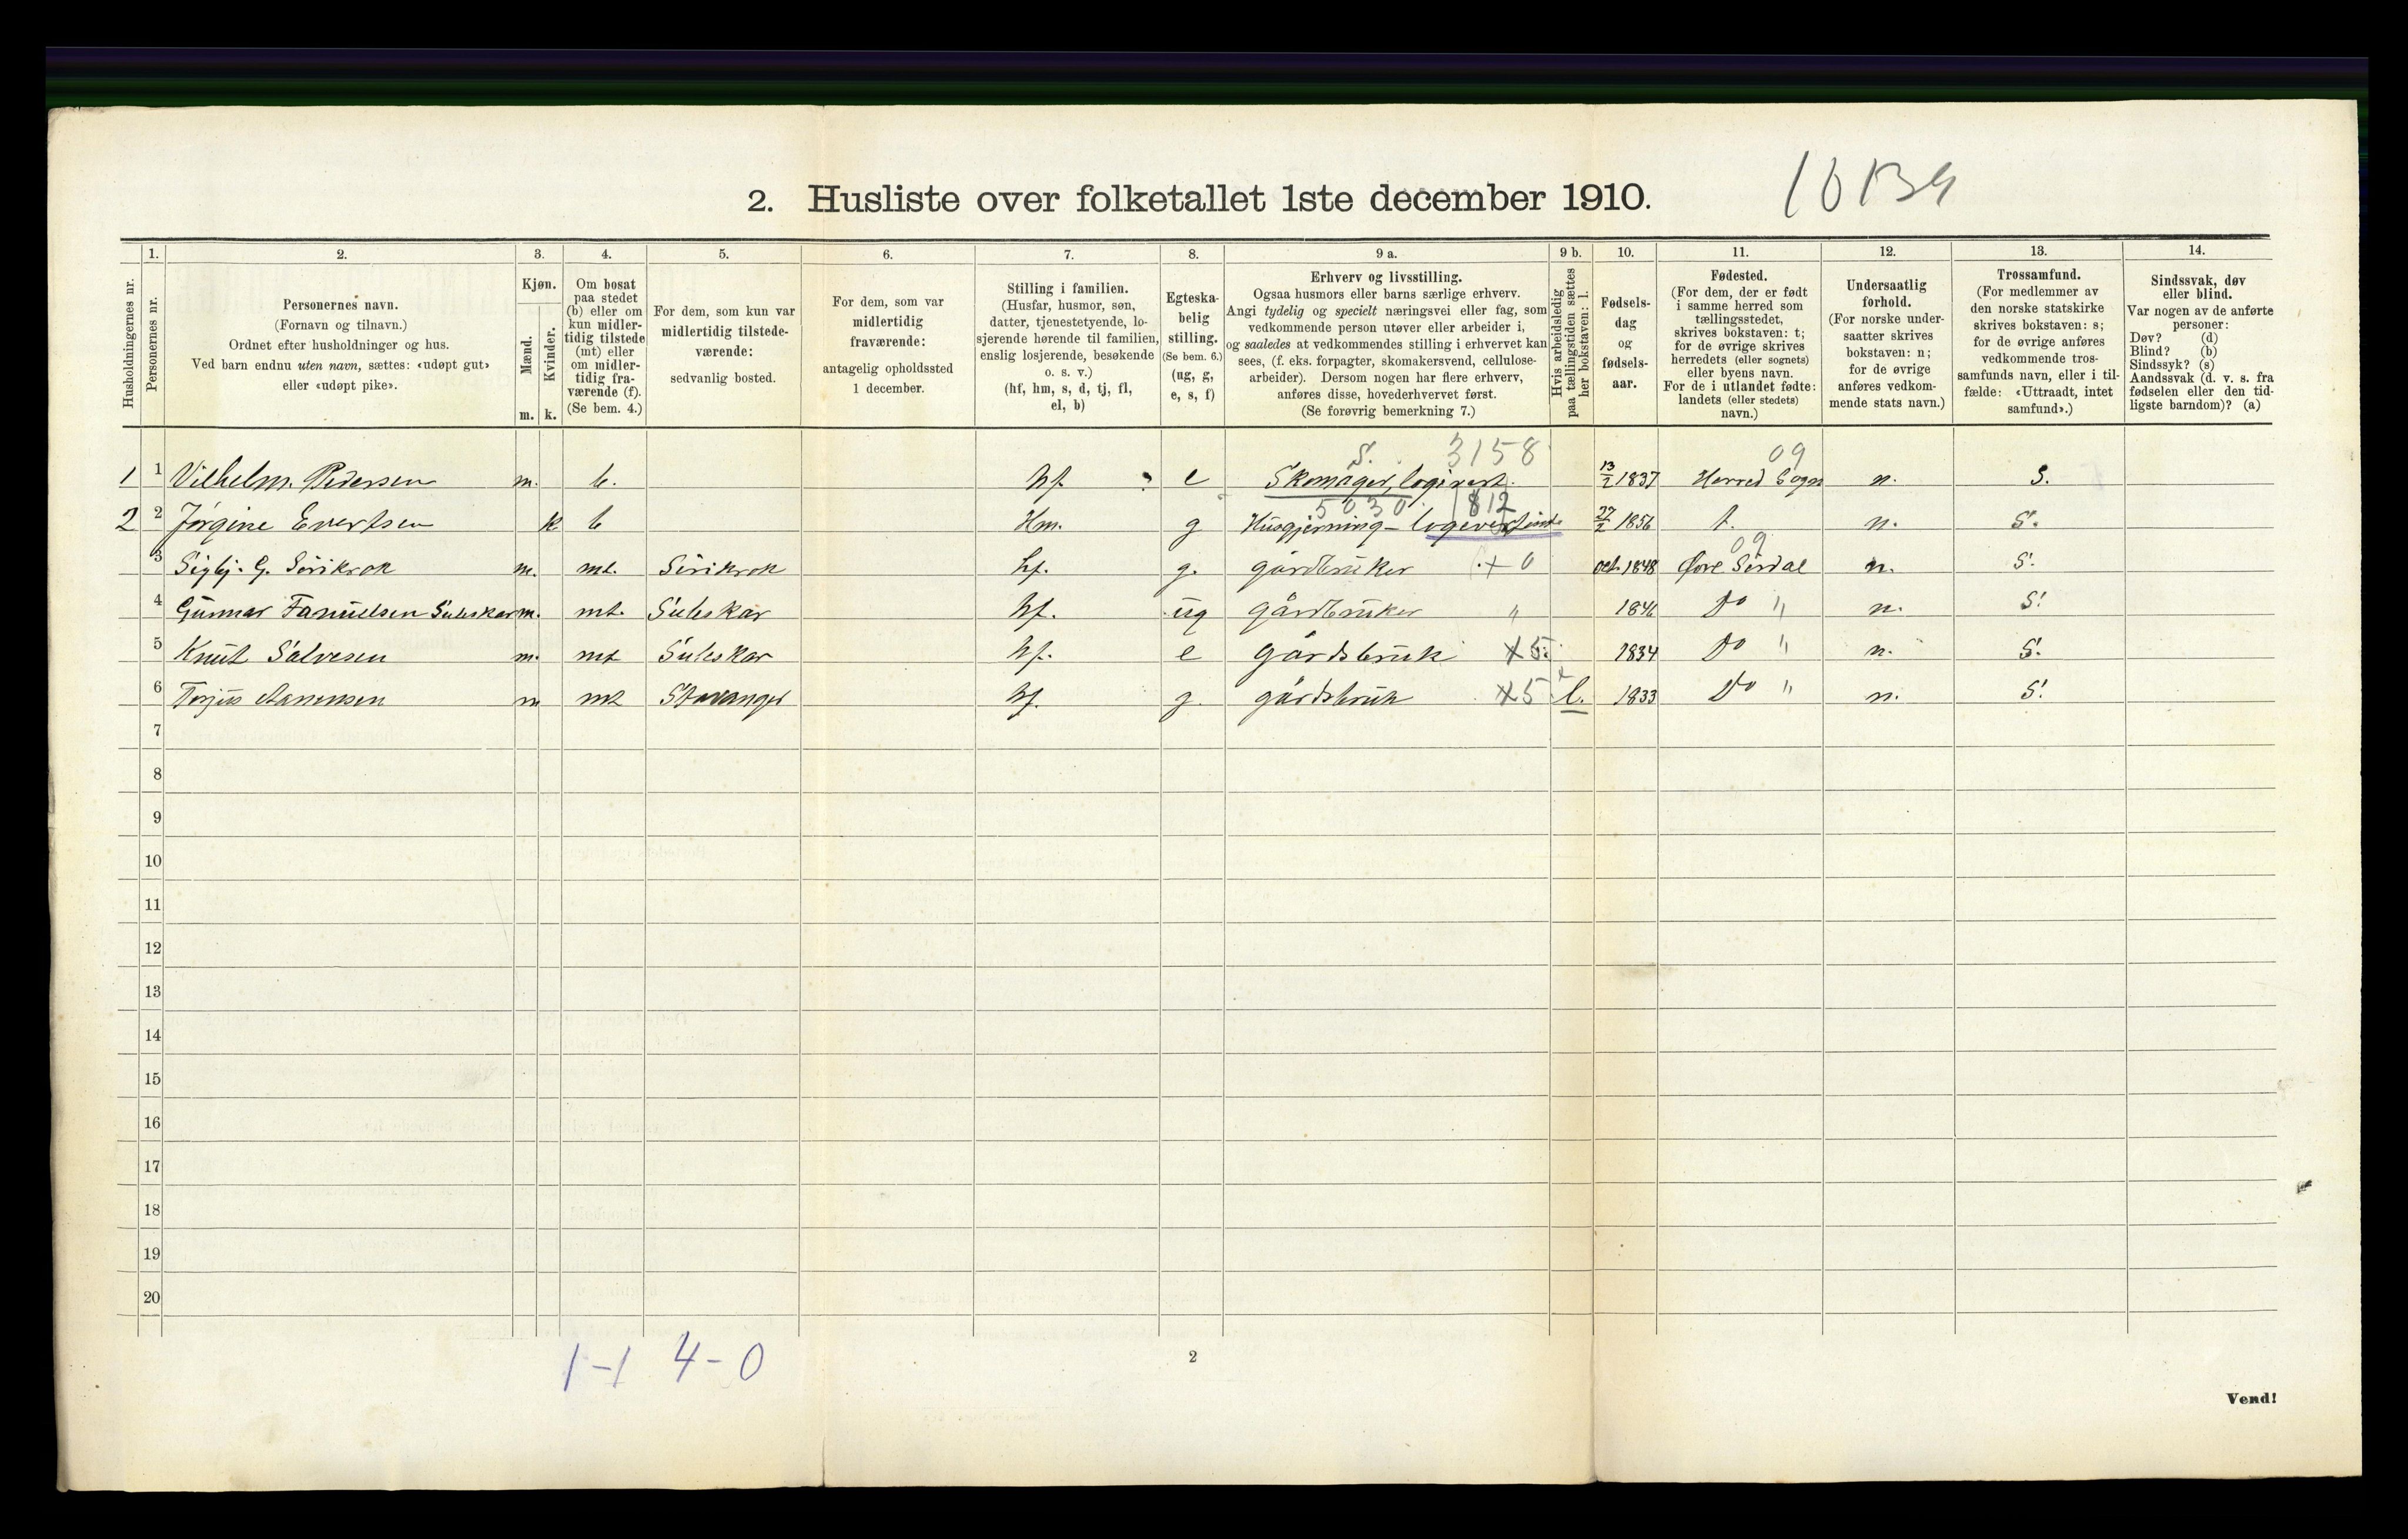 2. Husliste over folketallet 1ste december 1910.
1. 2. 3. 4. 5. 6. 7. 8. 9 a. 9 b. 10. 11. 12. 13. 14.
Husholdningernes nr.
Personernes nr.
Personernes navn.
(Fornavn og tilnavn.)
Ordnet efter husholdninger og hus.
Ved barn endnu uten navn, sættes: «udøpt gut»
eller «udøpt pike».
Kjøn.
Mænd.
Kvinder.
m. k.
Om bosat
paa stedet
(b) eller om
kun midler-
tidig tilstede
(mt) eller
om midler-
tidig fra-
værende (f).
(Se bem. 4.)
For dem, som kun var
midlertidig tilstede-
værende:
sedvanlig bosted.
For dem, som var
midlertidig
fraværende:
antagelig opholdssted
1 december.
Stilling i familien.
(Husfar, husmor, søn,
datter, tjenestetyende, lo-
sjerende hørende til familien,
enslig losjerende, besøkende
o. s. v.)
(hf, hm, s, d, tj, fl,
el, b)
Egteska-
belig
stilling.
(Se bem. 6.)
(ug, g,
e, s, f)
Erhverv og livsstilling.
Ogsaa husmors eller barns særlige erhverv.
Angi tydelig og specielt næringsvei eller fag, som
vedkommende person utøver eller arbeider i,
og saaledes at vedkommendes stilling i erhvervet kan
sees, (f. eks. forpagter, skomakersvend, cellulose-
arbeider). Dersom nogen har flere erhverv,
anføres disse, hovederhvervet først.
(Se forøvrig bemerkning 7.)
Hvis arbeidsledig
paa tællingstiden sættes
her bokstaven: l.
Fødsels-
dag
og
fødsels-
aar.
Fødested.
(For dem, der er født
i samme herred som
tællingsstedet,
skrives bokstaven: t;
for de øvrige skrives
herredets (eller sognets)
eller byens navn.
For de i utlandet fødte:
landets (eller stedets)
navn.)
Undersaatlig
forhold.
(For norske under-
saatter skrives
bokstaven: n;
for de øvrige
anføres vedkom-
mende stats navn.)
Trossamfund.
(For medlemmer av
den norske statskirke
skrives bokstaven: s;
for de øvrige anføres
vedkommende tros-
samfunds navn, eller i til-
fælde: «Uttraadt, intet
samfund».)
Sindssvak, døv
eller blind.
Var nogen av de anførte
personer:
Døv? (d)
Blind? (b)
Sindssyk? (s)
Aandssvak (d. v. s. fra
fødselen eller den tid-
ligste barndom)? (a)
S. 3158 09
1 1 Vilhelm. Pedersen m. b. hf. e Skomager, logivert. 13/2 1837 Herred Sogn n. S.
5030 1812
2 2 Jørgine Evertsen k b Hm. g Husgjerning - logevertinde 27/2 1856 t. n. S.
09
3 Sigbj. G. Sirikrok m. mt. Sirikrok hf. g. gårdbruker .+ 0 oct. 1848 Øvre Sirdal n. S.
4 Gunnar Tanulsen Suleskar m. mt. Suleskar hf. ug Gårdbruker " 1846 Do " n. S.
5 Knut Salvesen m. mt Suleskar hf. e Gårdsbruk x 5. 1834 Do " n. S.
6 Terjus Aanensen m mt Stavanger hf. g. gårdsbruk x 5 l. 1833 Do " n. S.
7
8
9
10
11
12
13
14
15
16
17
18
19
20
1-1 4-0
2
Vend!